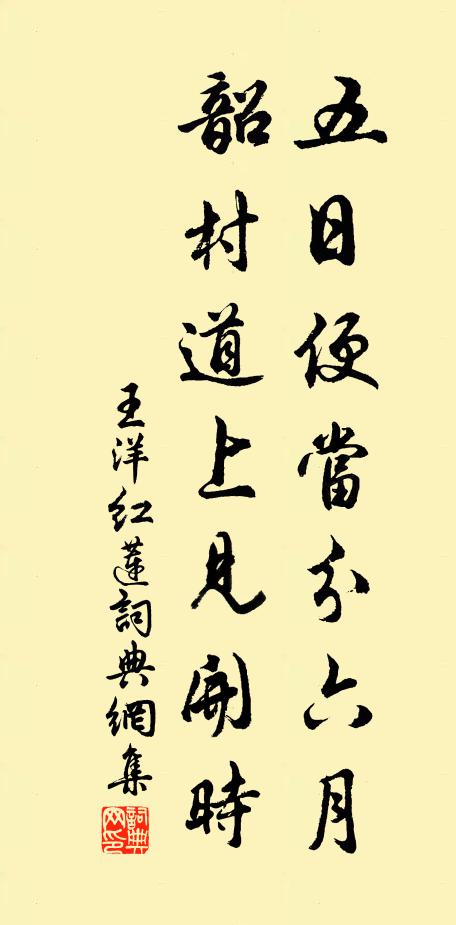 五日便當分六月
韶村道上見開時
王洋紅蓮詞典網集
詞典網印